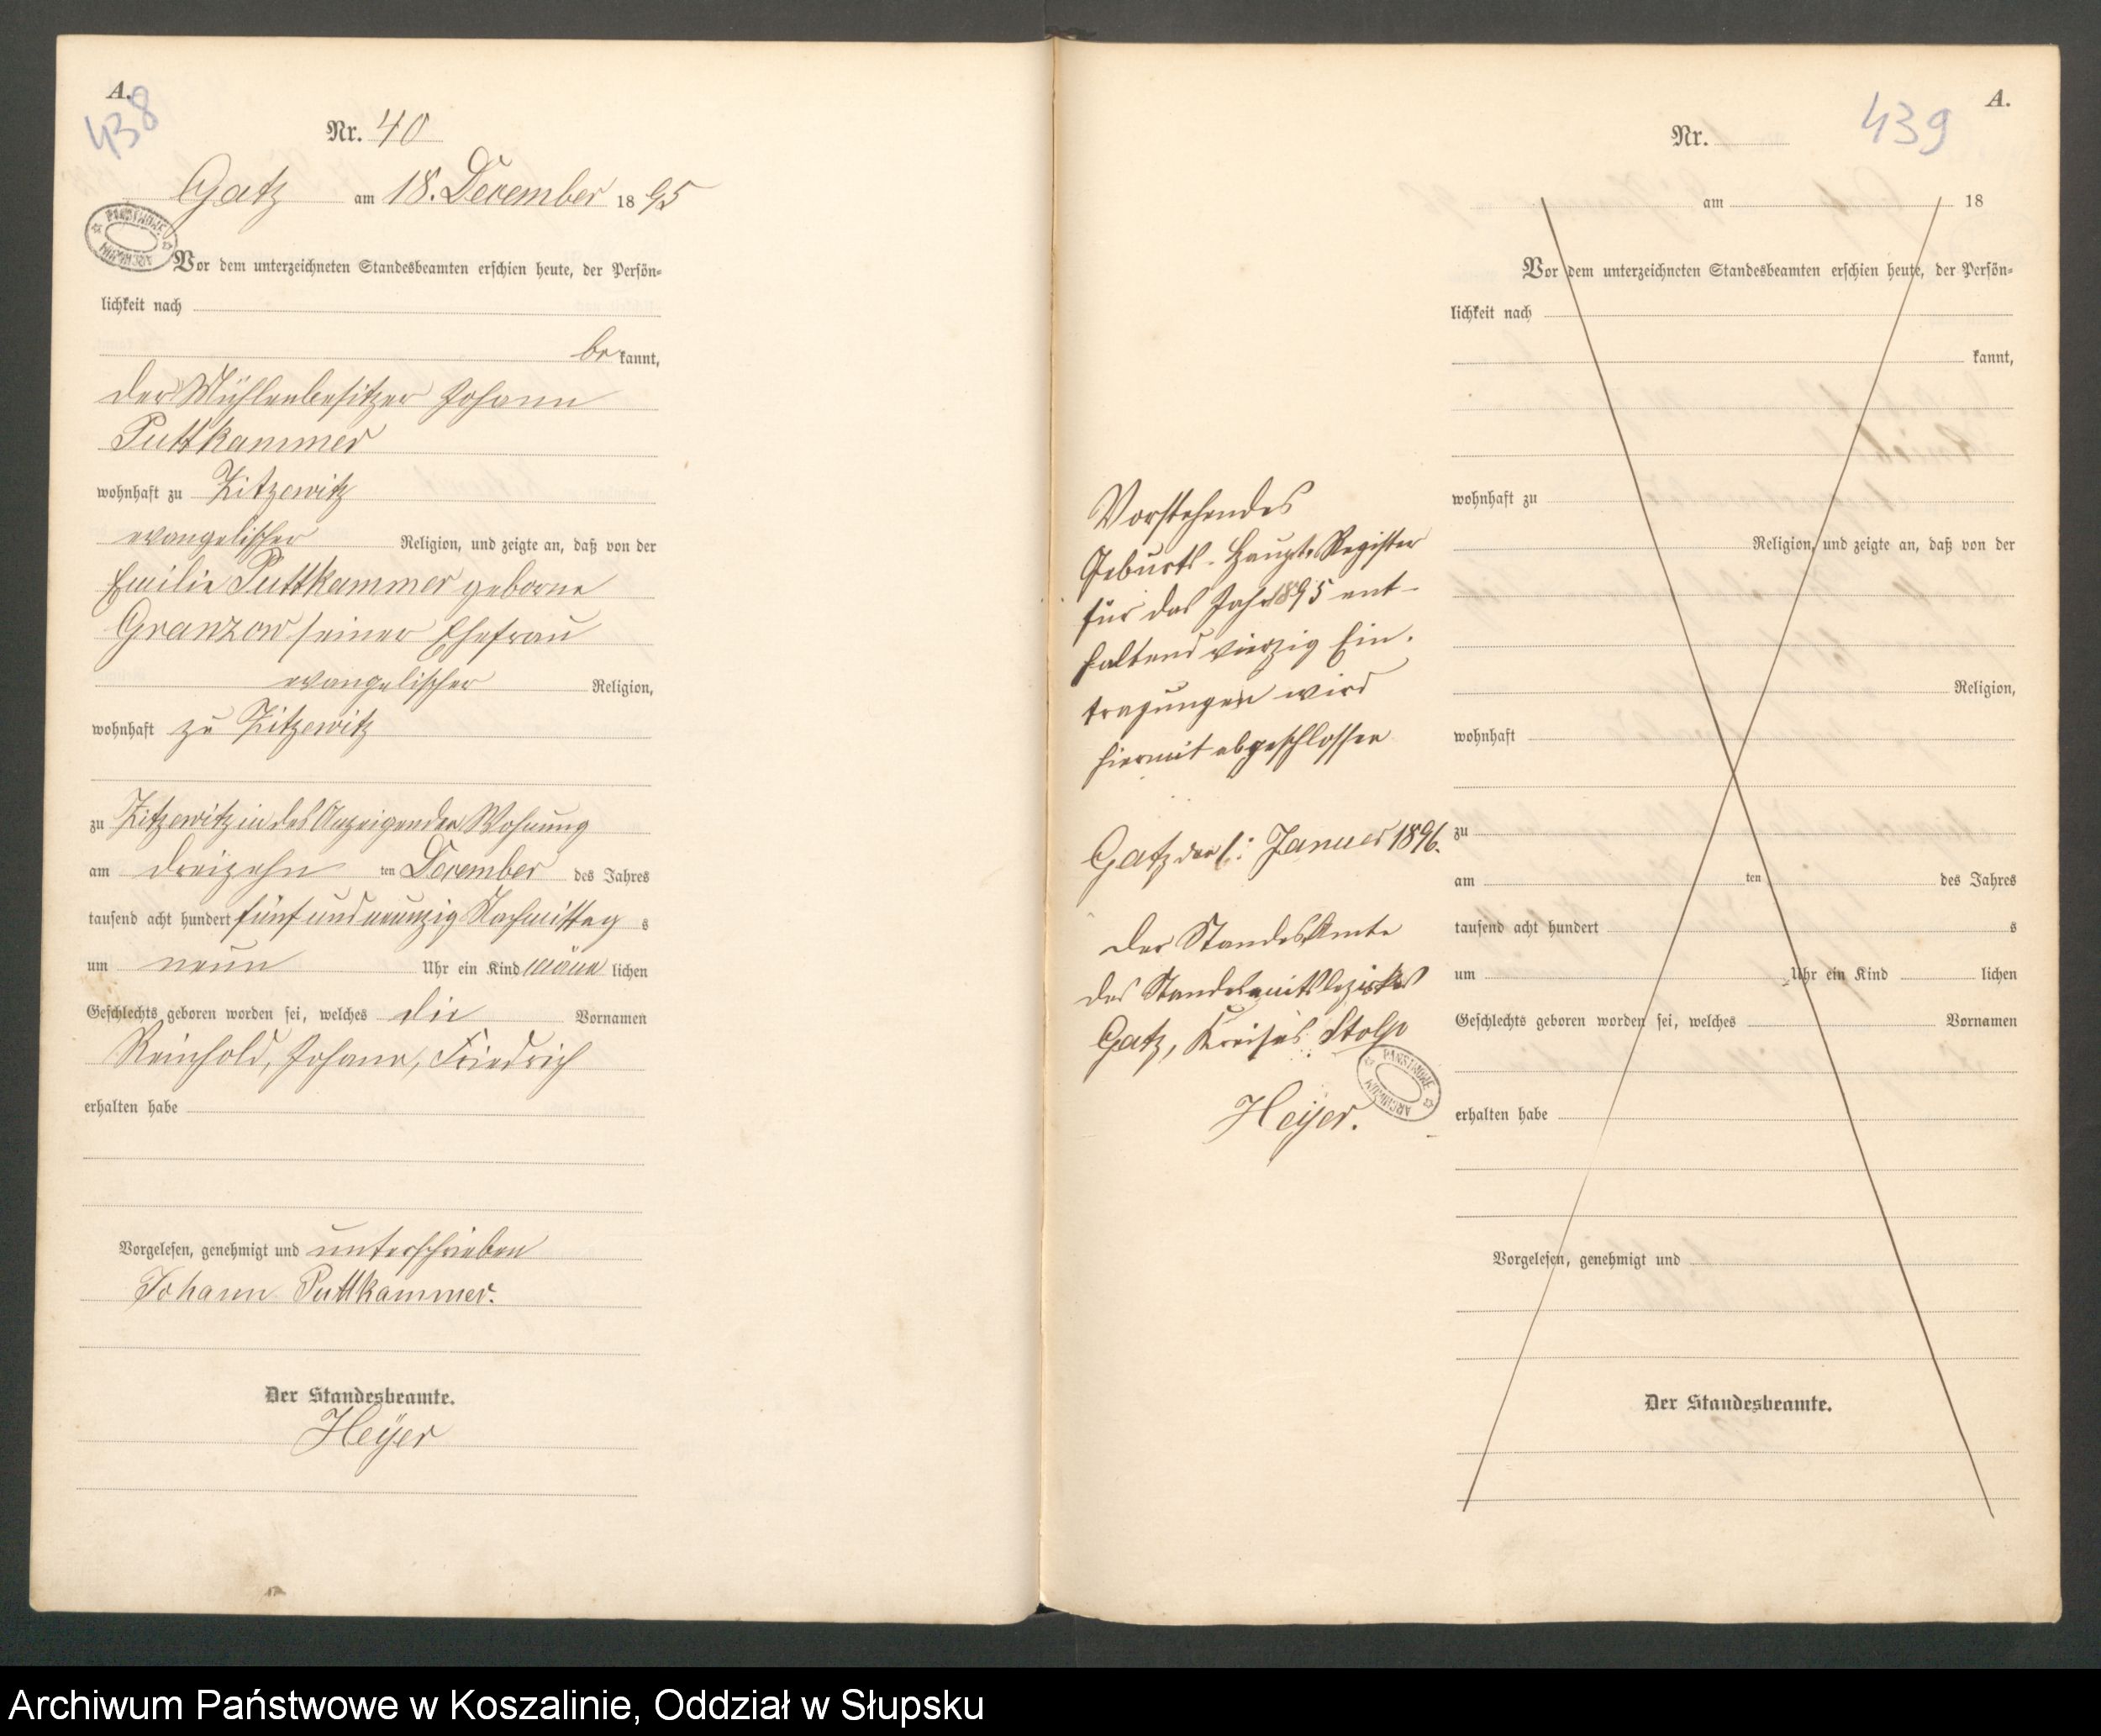 A.
438
Nr. 40
Gatz am 18. December 1895
Vor dem unterzeichneten Standesbeamten erschien heute, der Persön-
lichkeit nach
be kannt,
der Mühlenbesitzer Johann
Puttkammer
wohnhaft zu Zitzewitz
evangelischer Religion, und zeigte an, daß von der
Emilie Puttkammer geborne
Granzow seiner Ehefrau
evangelischer Religion,
wohnhaft zu Zitzewitz
zu Zitzewitz in des Anzeigenden Wohnung
am dreizehn ten December des Jahres
tausend acht hundert fünf und neunzig Nachmittag s
um neun Uhr ein Kind männ lichen
Geschlechts geboren worden sei, welches die Vornamen
Reinhold, Johann, Friedrich
erhalten habe
Vorgelesen, genehmigt und unterschrieben
Johann Puttkammer.
Der Standesbeamte.
Heÿer
PAŃSTWOWE
ARCHIWUM
A.
439
Nr.
am 18
Vor dem unterzeichneten Standesbeamten erschien heute, der Persön-
lichkeit nach
kannt,
wohnhaft zu
Religion, und zeigte an, daß von der
Religion,
wohnhaft
zu
am ten des Jahres
tausend acht hundert s
um Uhr ein Kind lichen
Geschlechts geboren worden sei, welches Vornamen
erhalten habe
Vorgelesen, genehmigt und
Der Standesbeamte.
Vorstehendes
Geburts-Haupt-Register
für das Jahr 1895 ent-
haltend vierzig Ein-
tragungen wird
hiermit abgeschlossen
Gatz den 1. Januar 1896.
Der Standesbeamte
des Standesamtsbezirks
Gatz, Kreises Stolp
Heÿer.
PAŃSTWOWE
ARCHIWUM
Archiwum Państwowe w Koszalinie, Oddział w Słupsku